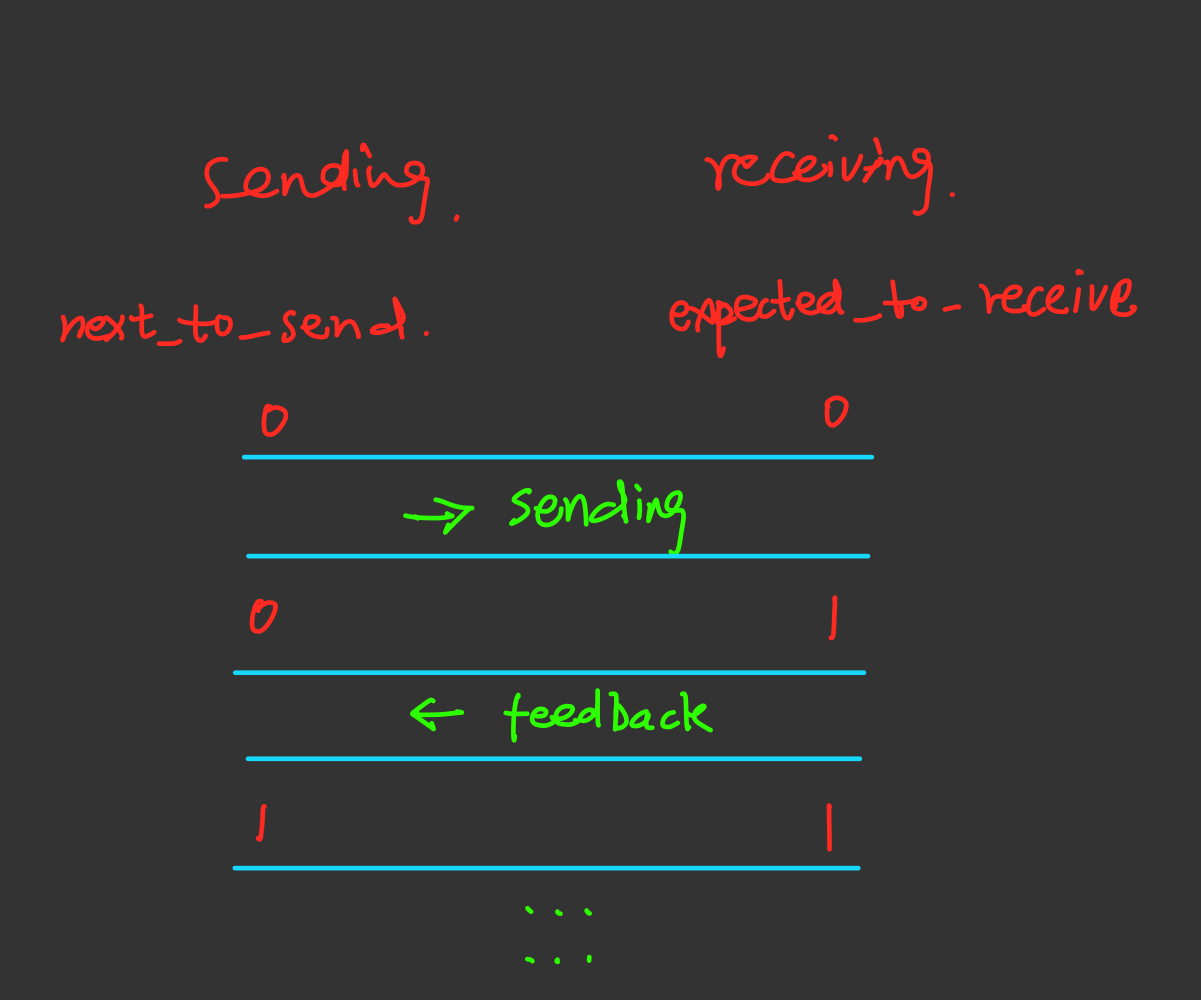 Sending. receiving.
next_to_send. expected_to_receive
0 0
→ sending
0 1
← feedback
1 1
. . .
. . .